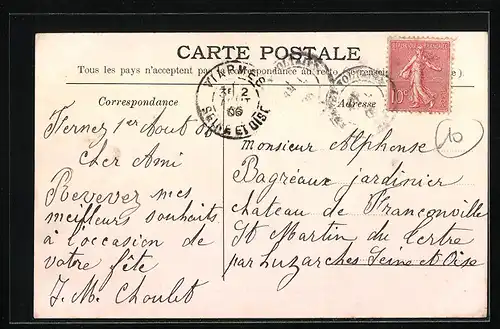 CARTE POSTALE
Tous les pays n'acceptent pas la correspondance au recto (se renseigner
Correspondance
Adresse
2
06
SEINE ET OISE
10
10
Ferney 1er Aout 06
Cher Ami
Recevez mes
meilleurs souhaits
à l'occasion de
votre fête
J. M. Choulet
Monsieur Alphonse
Bagréaux jardinier
chateau de Franconville
St Martin du Tertre
par Luzarches Seine et Oise